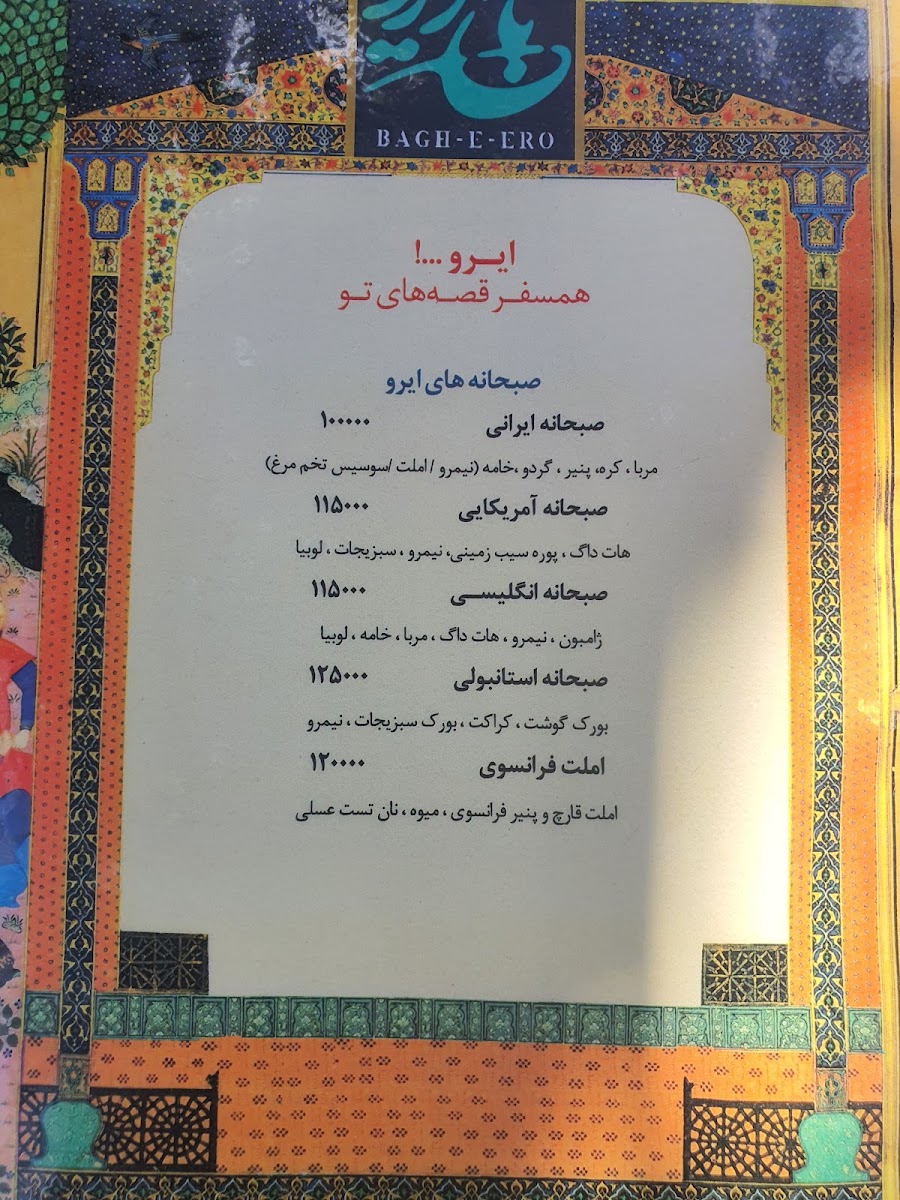 باغ ایرو
BAGH-E-ERO
ایـــرو ....!
همسفـر قصـه‌های تـو
صبحانه های ایرو
صبحانه ایرانی ۱۰۰۰۰۰
مربا ، کره، پنیر ، گردو ،خامه (نیمرو / املت /سوسیس تخم مرغ)
صبحانه آمریکایی ۱۱۵۰۰۰
هات داگ ، پوره سیب زمینی، نیمرو ، سبزیجات ، لوبیا
صبحانه انگلیســی ۱۱۵۰۰۰
ژامبون ، نیمرو ، هات داگ ، مربا ، خامه ، لوبیا
صبحانه استانبولی ۱۲۵۰۰۰
بورک گوشت ، کراکت ، بورک سبزیجات ، نیمرو
املت فرانسوی ۱۲۰۰۰۰
املت قارچ و پنیر فرانسوی ، میوه ، نان تست عسلی